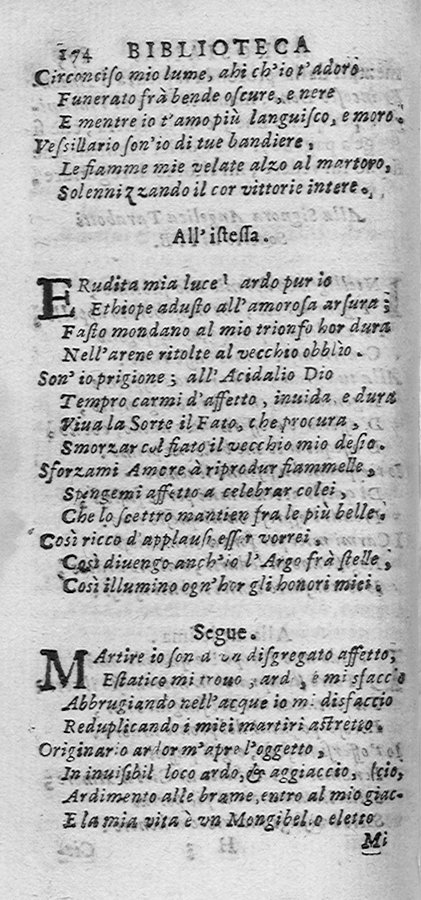 174 BIBLIOTECA
Circonciso mio lume, ahi ch'io t'adoro
Funerato frà bende oscure, e nere
E mentre io t'amo più languisco, e moro.
Vessillario son'io di tue bandiere,
Le fiamme mie velate alzo al martoro,
Solennizzando il cor vittorie intere.
All'istessa.
ERudita mia luce! ardo pur io
Ethiope adusto all'amorosa arsura;
Fasto mondano al mio trionfo hor dura
Nell'arene ritolte al vecchio obblìo.
Son'io prigione; all'Acidalio Dio
Tempro carmi d'affetto, inuida e dura
Viua la Sorte il Fato, che procura,
Smorzar col fiato il vecchio mio desio.
Sforzami Amore à riprodur fiammelle,
Spingemi affetto a celebrar colei,
Che lo scettro mantien fra le più belle.
Così ricco d'applausi esser vorrei.
Così diuengo anch'io l'Argo frà stelle,
Così illumino ogn'hor gli honori miei.
Segue.
MArtire io son d'un disgregato affetto,
Estatico mi trouo, ard, e mi sfaccio
Abbrugiando nell'acque io mi disfaccio
Reduplicando i miei martiri astretto.
Originario ardor m'apre l'oggetto,
In inuisibil loco ardo, & aggiaccio, (cio,
Ardimento alle brame, entro al mio giac-
E la mia vita è vn Mongibello eletto
Mi